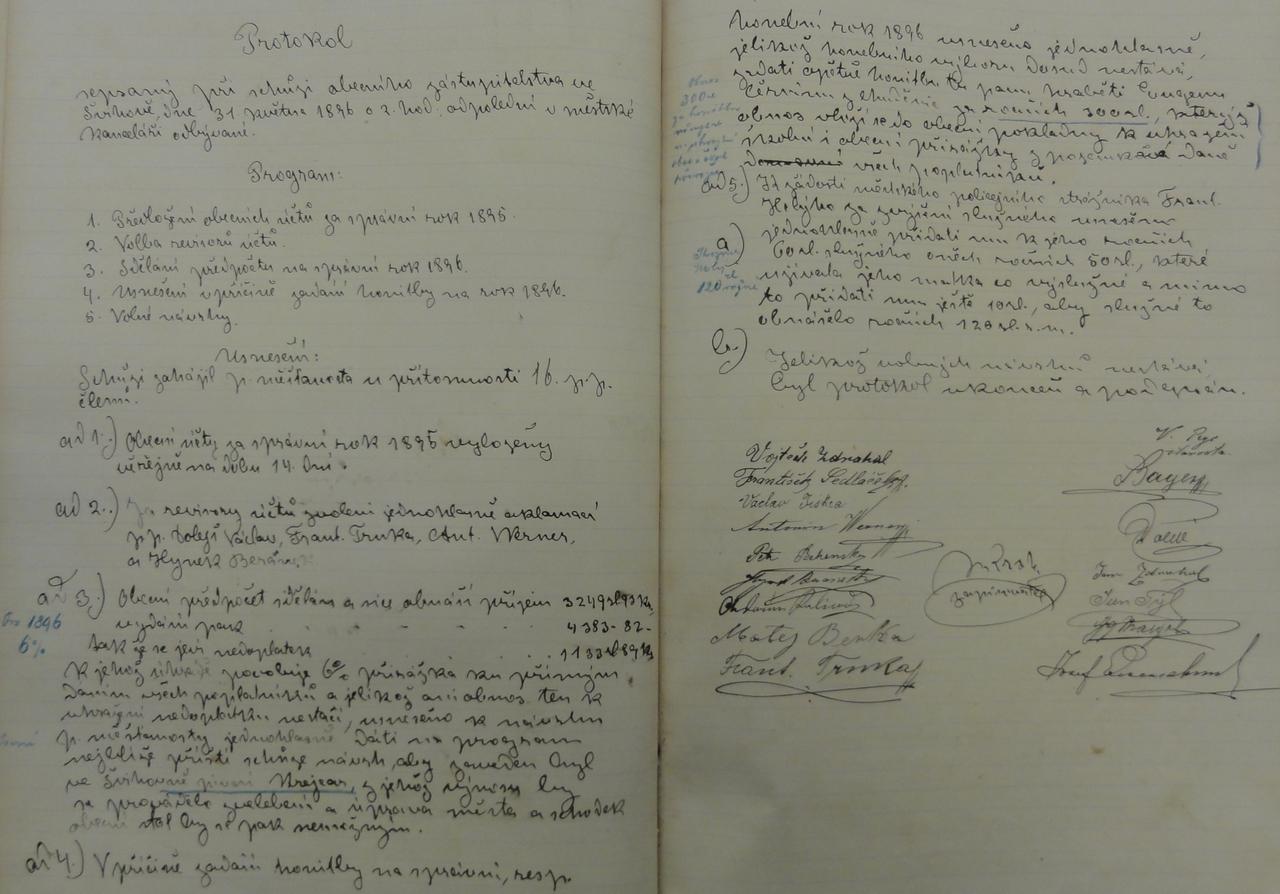 Protokol
sepsaný při schůzi obecního zastupitelstva ve
Švihově, dne 31 května 1896 o 2. hod. odpolední v městské
kanceláři odbývané.
Program:
1. Předložení obecních účtů za správní rok 1895.
2. Volba revisorů účtů.
3. Sdělání předpočtu na správní rok 1896.
4. Usnešení v příčině zadání honitby na rok 1896.
5. Volné návrhy.
Usnešení:
Schůzi zahájil p. měšťanosta u přítomnosti 16. p.p.
členů.
ad 1.) Obecní účty za správní rok 1895 vyloženy
veřejně na dobu 14. dní.
ad 2.) Za revisory účtů zvoleni jednohlasně aklamací
p.p. Dolejš Václav, Frant. Trnka, Ant. Werner,
a Hynek Beránek
ad 3.) Obecní předpočet sdělán a sice obnáší příjem 3249 zl 93 kr.
vydání pak 4383-82-
tak že se jeví nedoplatek 1133 zl 89 kr
1896
6%
k jehož úhradě povoluje 6% přirážka ku přímým
daním všech poplatníků a jelikož ani obnos ten k
uhražení nedoplatku nestačí, usneseno k návrhu
p. měšťanosty jednohlasně dáti na program
nejbližší příští schůze návrh, aby zaveden byl
ve Švihově pivní krejcar, z jehož výnosu by
se provádělo zvelebení a úprava města a schodek
obecní stal by se pak nemožným.
ad 4.) V příčině zadání honitby na správní, resp.
honební rok 1896 usnešeno jednohlasně,
jelikož honebního výboru dosud nestává,
zadati opětně honitbu tu panu hraběti Eugenu
Černínu z Chudenic za ročních 300 zl., kterýž
obnos vloží se do obecní pokladny k uhražení
školní i obecní přirážky z pozemkové daně
všech poplatníků.
Obnos
300 zl
za honitbu
ad 5.) K žádosti městského policejního strážníka Frant.
Holýho za zvýšení služného usnešeno
a) jednohlasně přidati mu k jeho ročních
60 zl. služného oněch ročních 50 zl., které
užívala jeho matka co výslužné a mimo
to přidati mu ještě 10 zl., aby služné to
obnášelo ročních 120 zl. r.m.
120 ročně
b.) Jelikož volných návrhů nestává
byl protokol ukončen a podepsán.
Vojtěch Zdrahal
František Sedláček
Václav Jiskra
Antonín Werner
Petr
Antonín
Matěj Benka
Frant. Trnka
zapisovatel
starosta
Bayer
Jan Zdrahal
Jan Týl
Josef